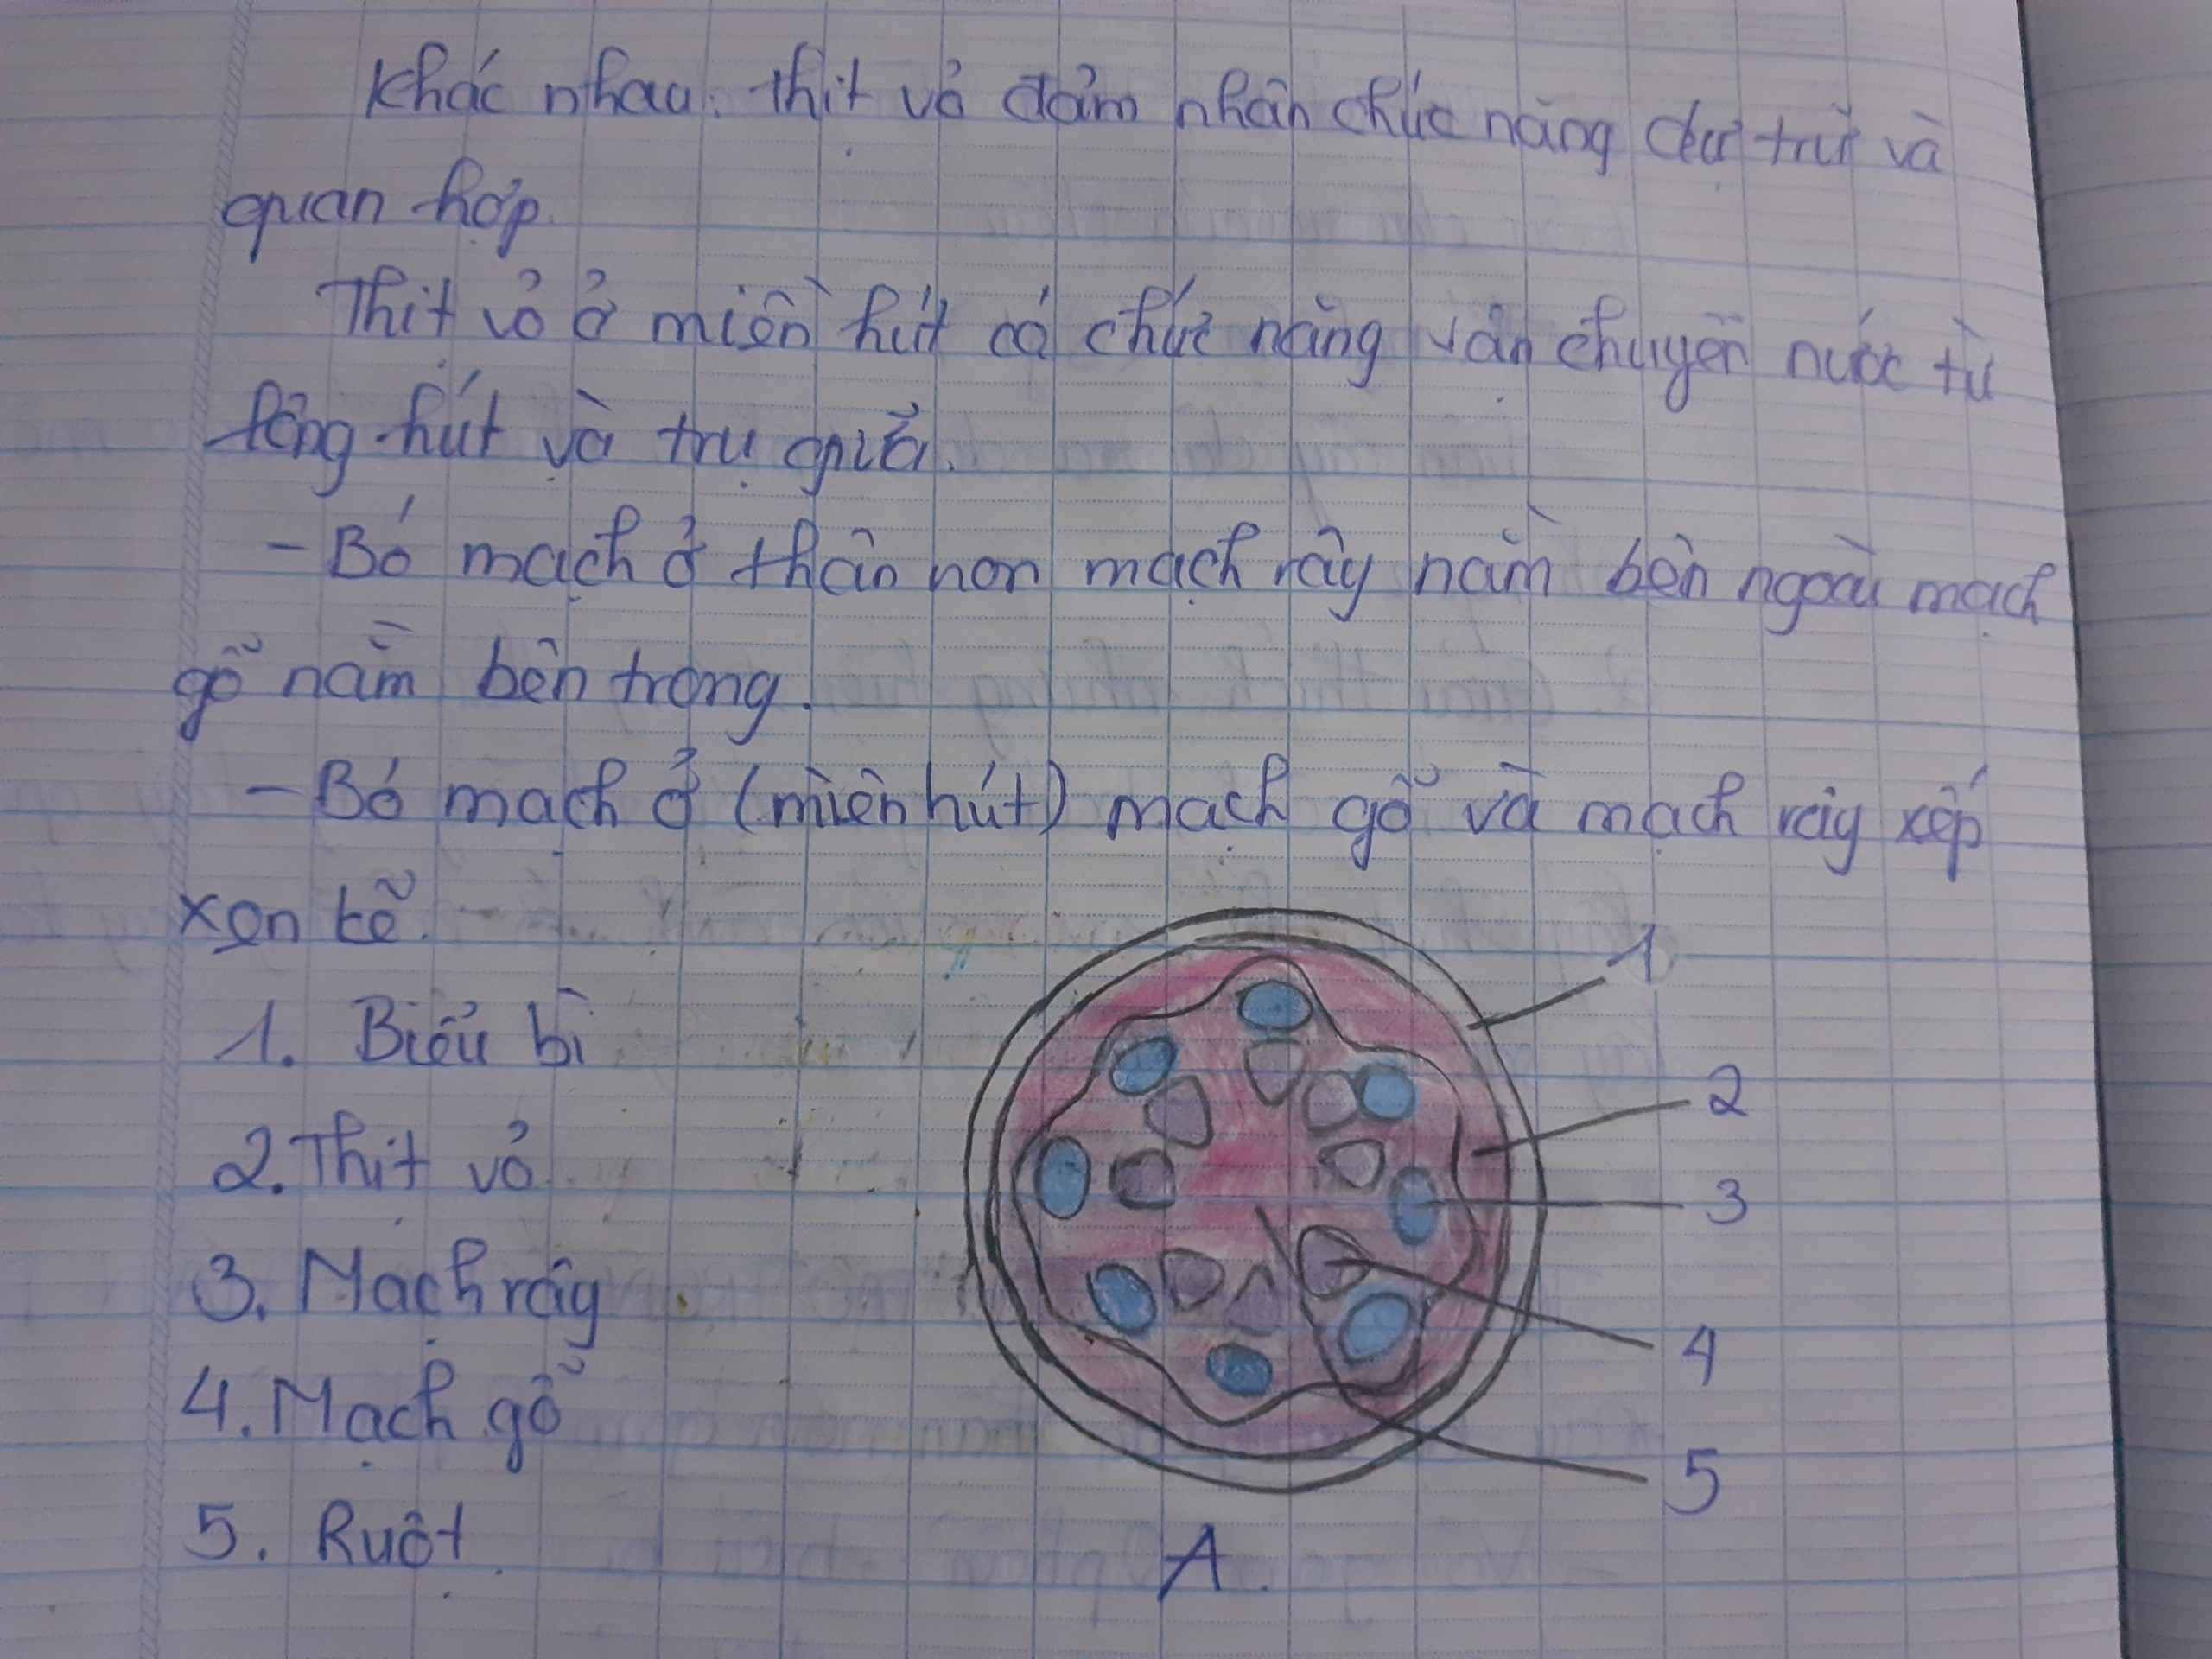 Khác nhau: thịt vỏ đảm nhận chức năng dự trữ và
quan hợp.
Thịt vỏ ở miền hút có chức năng vận chuyển nước từ
lông hút và trụ giữa.
- Bó mạch ở thân non mạch rây nằm bên ngoài mạch
gỗ nằm bên trong.
- Bó mạch ở (miền hút) mạch gỗ và mạch rây xếp
xen kẽ.
1. Biểu bì
2. Thịt vỏ
3. Mạch rây
4. Mạch gỗ
5. Ruột
1
2
3
4
5
A.